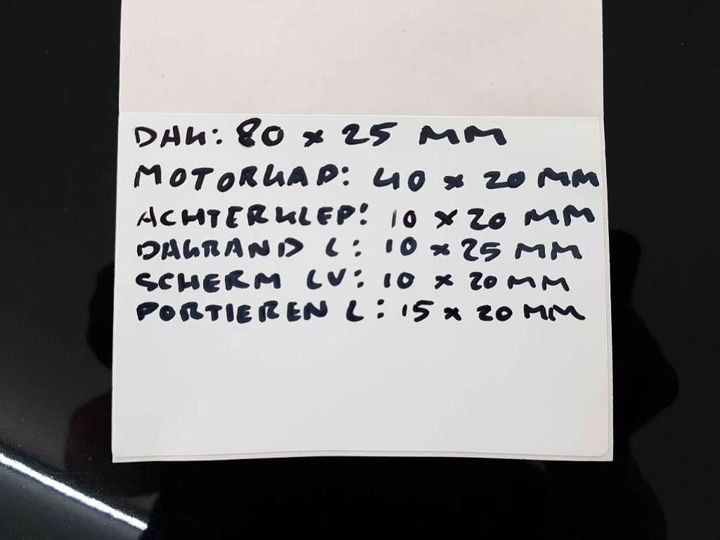 DAK: 80 x 25 MM
MOTORKAP: 40 x 20 MM
ACHTERKLEP: 10 x 20 MM
DAKRAND L: 10 x 25 MM
SCHERM LV: 10 x 20 MM
PORTIEREN L: 15 x 20 MM